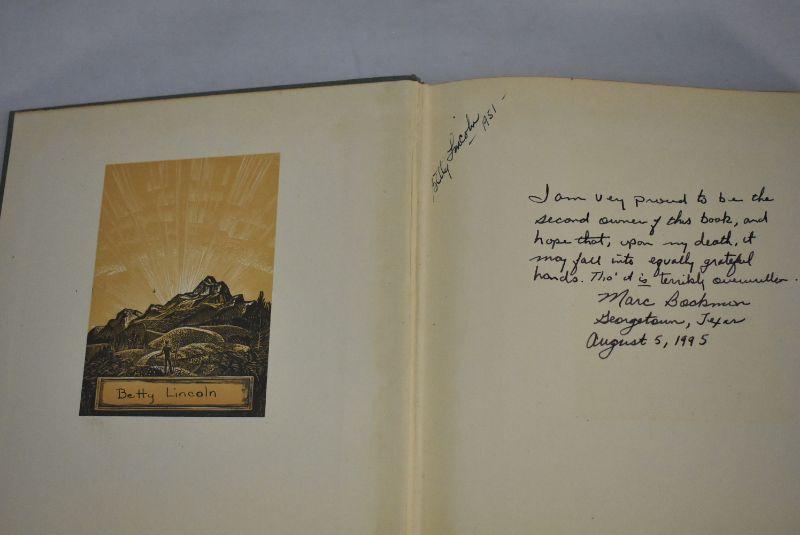 Betty Lincoln
Betty Lincoln
1951 -
I am vey proud to be the
second owner of this book, and
hope that, upon my death, it
may fall into equally grateful
hands. Tho' it is terribly overwritten.
Marc Bockmon
Georgetown, Texas
August 5, 1995